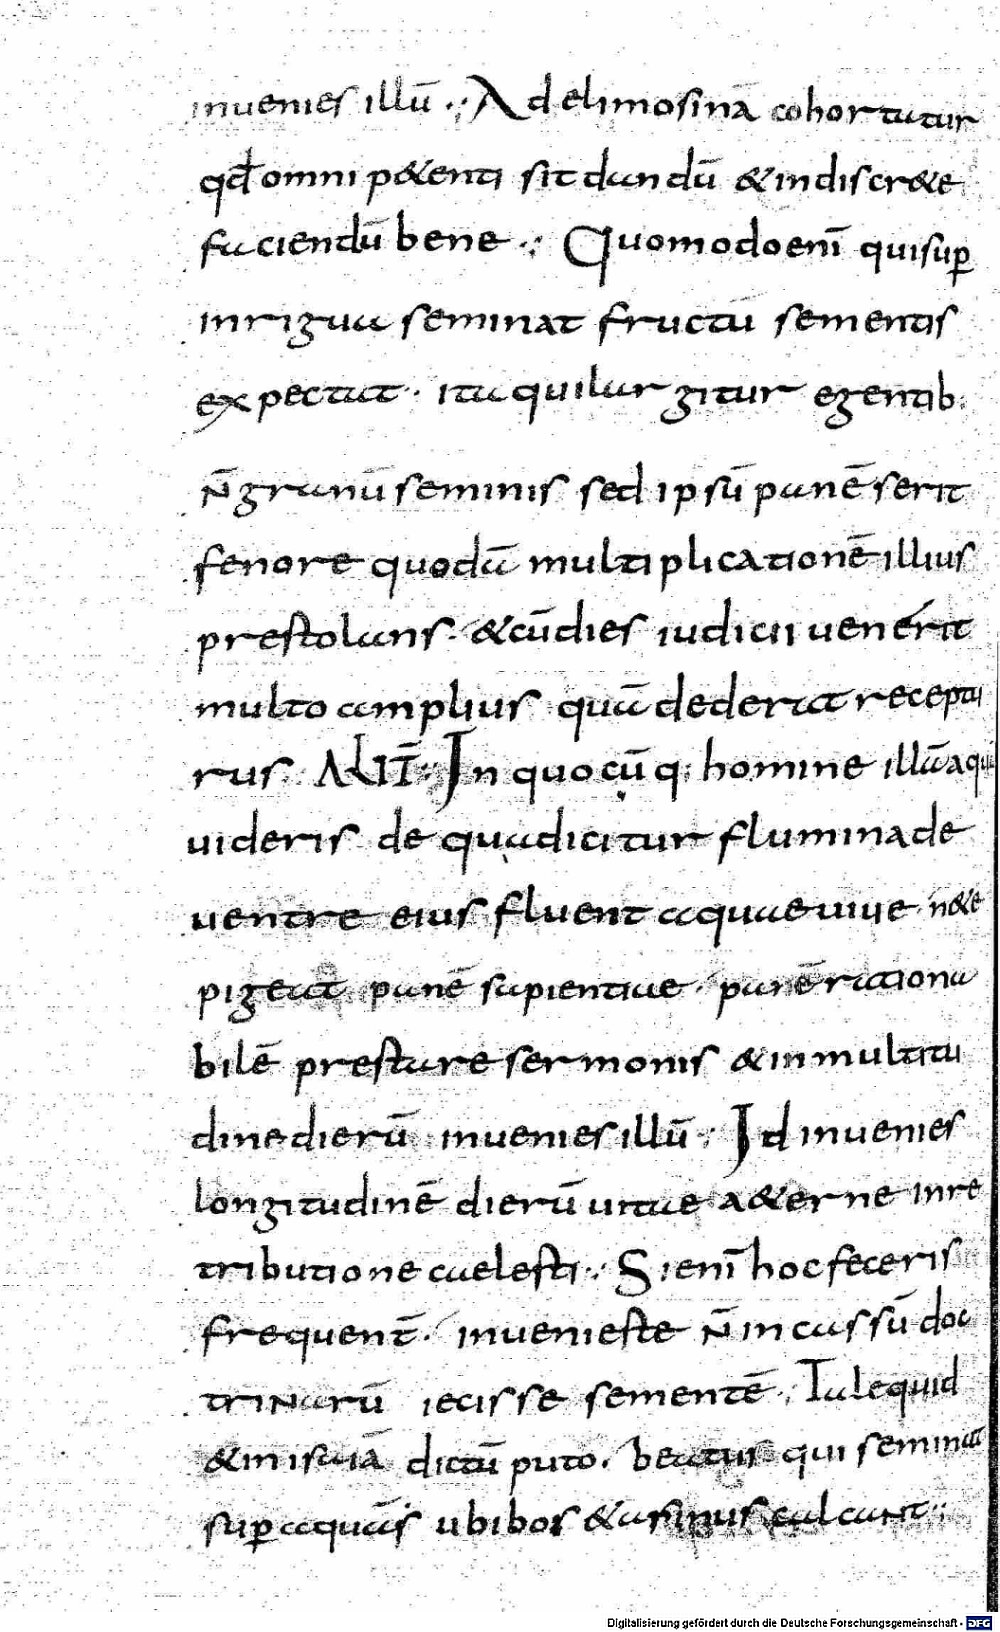 inuenies illū ·:· Ad elimosinā cohortatur
qđ omni p&enti sit dandū & indiscr&e
faciendū bene ·:· Quomodo enī qui sup̄
inrigua seminat fructū sementis
expectat · ita qui largitur egentib·
n̄ granū seminis sed ipsū panē serit
fenore quodā multiplicationē illius
prestolans · & cū dies iudicii uenerit
multo amplius quā dederat receptu
rus · ALIT̄ ·:· In quocūq· homine illā aquā
uideris de qua dicitur flumina de
uentre eius fluent aquae uiue n& e
pigeat panē sapientiae · panē rationa
bilē prestare sermonis & in multitu
dine dierū inuenies illū ·:· Id inuenies
longitudinē dierū uitae a&erne in re
tributione caelesti ·:· Si enī hoc feceris
frequent̄ · inuenies te n̄ in cassū doc
trinarū iecisse sementē · Tale quid
& in isaiā dictū puto · beatus qui seminat
sup̄ aquas ubi bos & asinus calcant ·:·
Digitalisierung gefördert durch die Deutsche Forschungsgemeinschaft - DFG